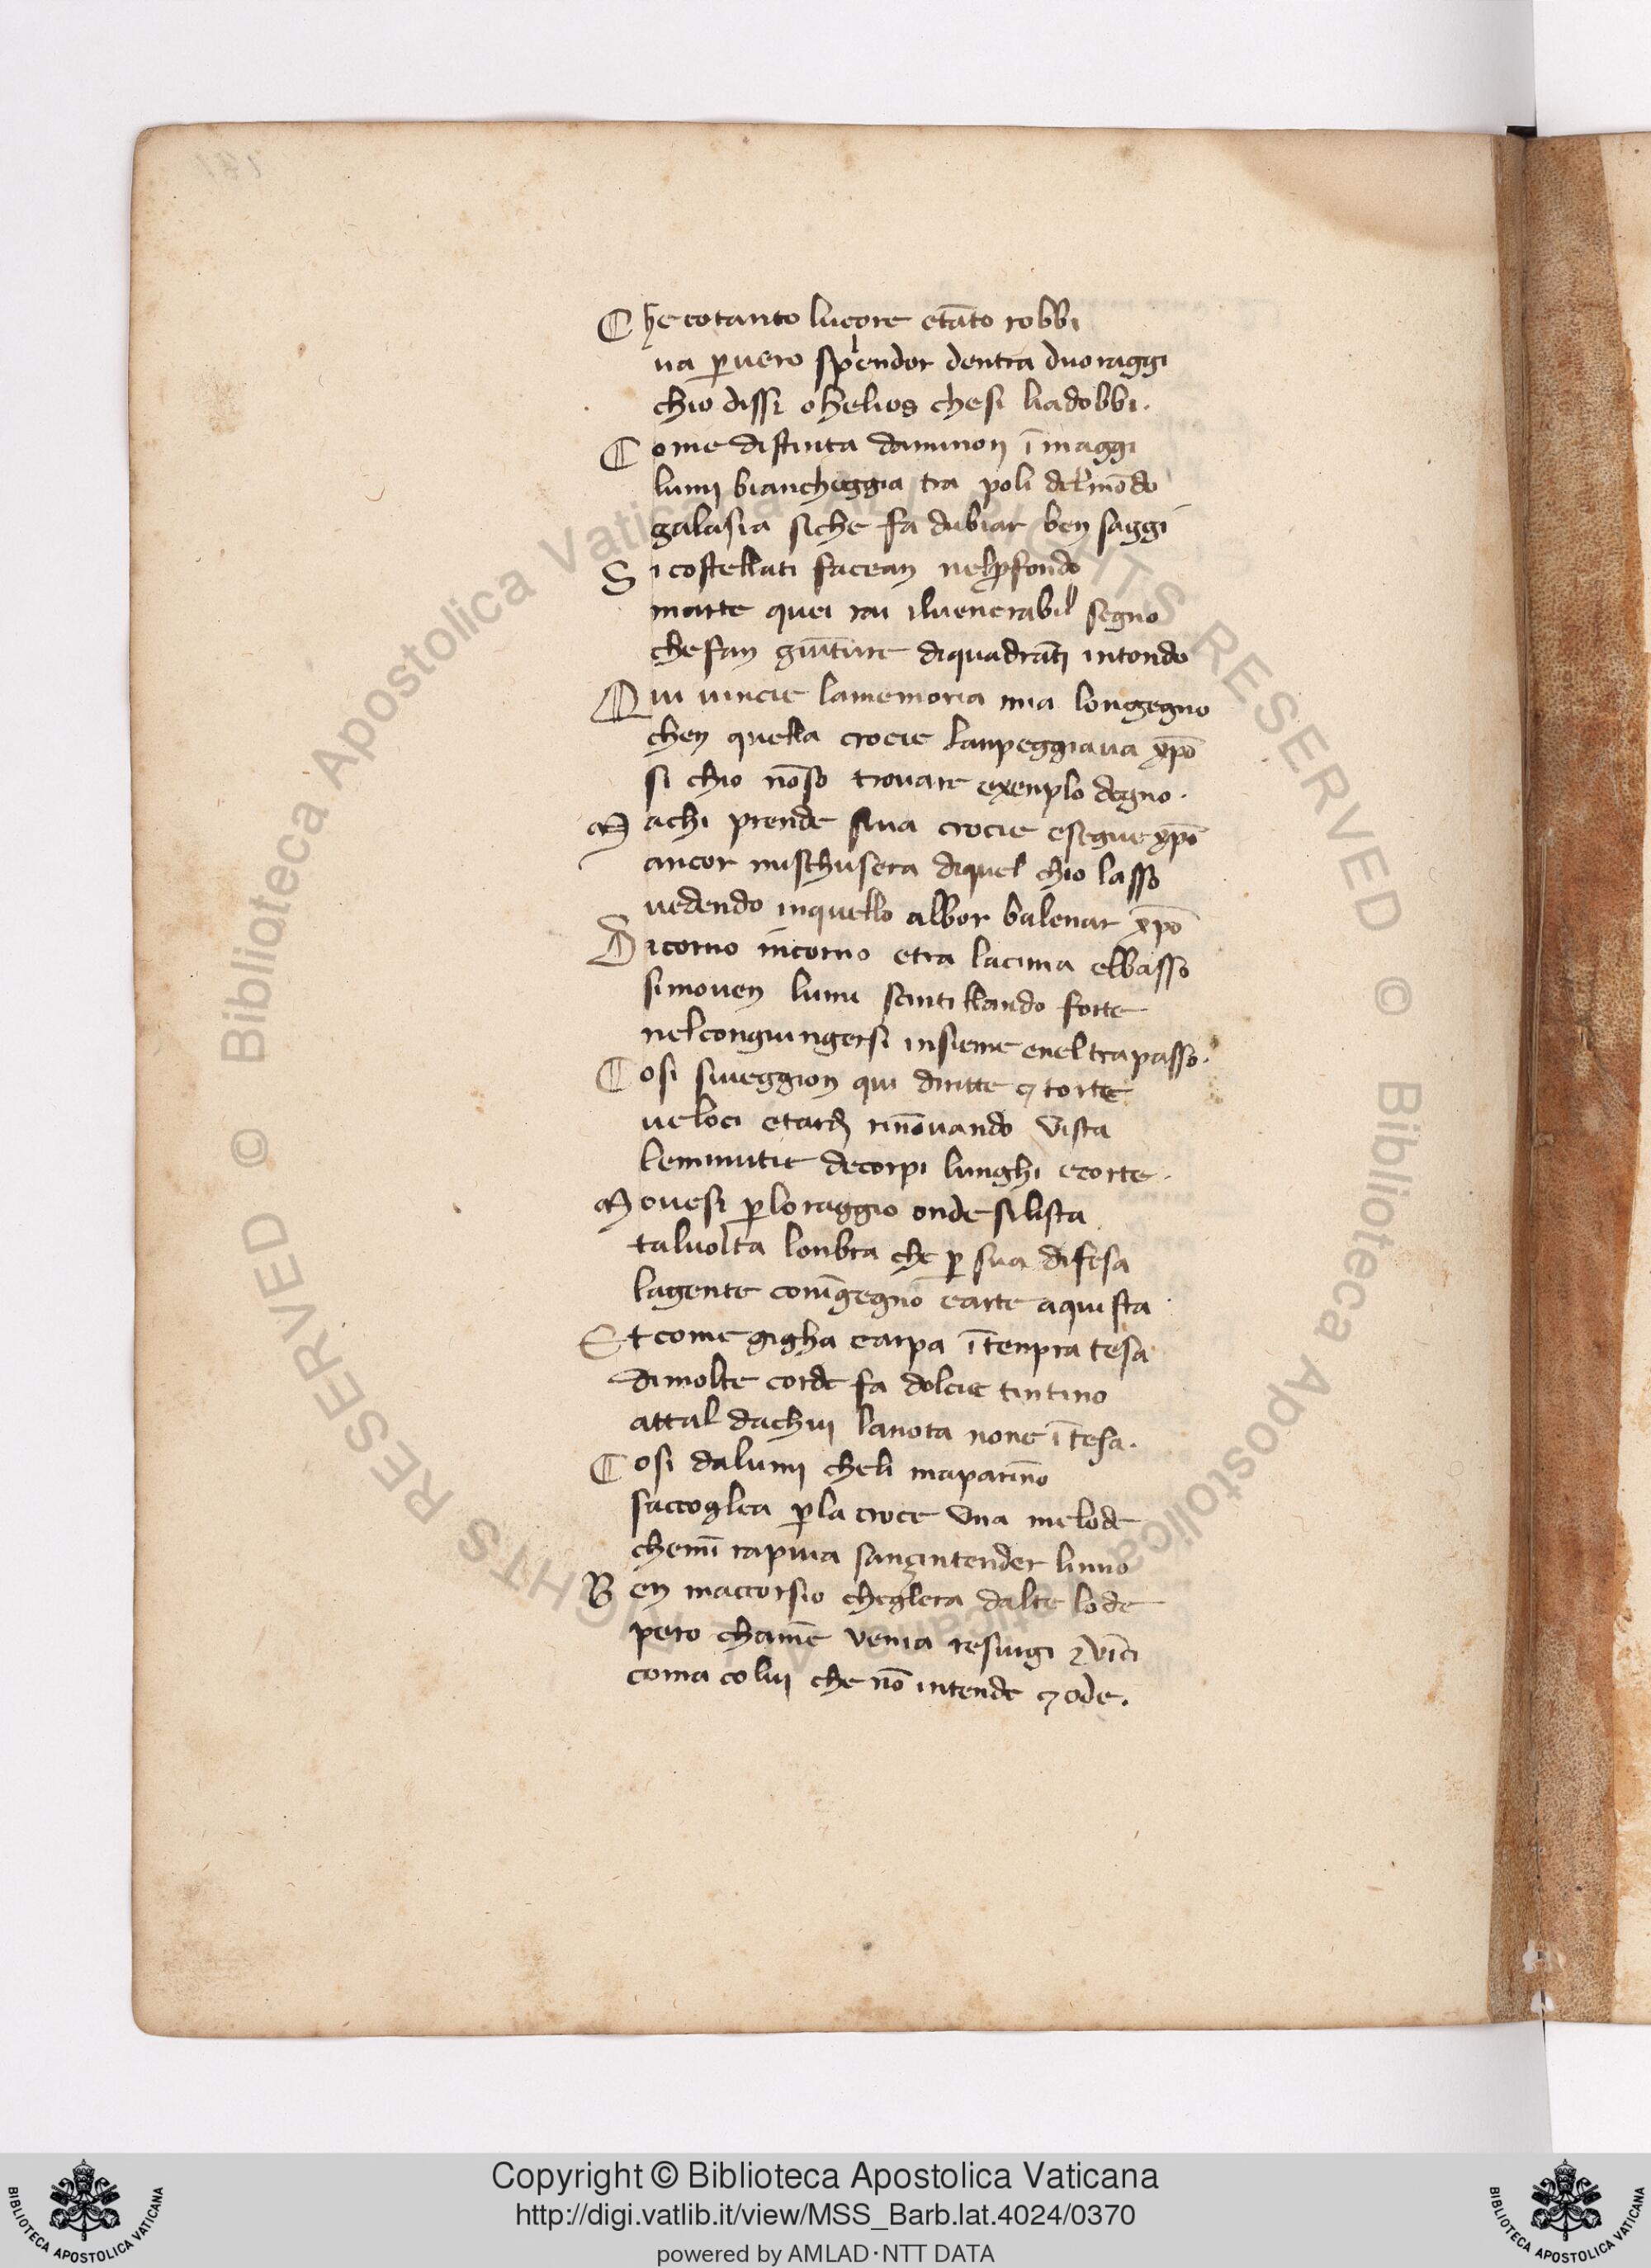 Che cotanto lucore etāto robbi
ua ꝑuero splendor dentra duoraggi
chio dissi ohelios chesi liadobbi.
Come distinta daminon ī maggi
lumi biancheggia tra poli del mōdo
galasia siche fa dubiar ben saggi
Sicostellati facean nelꝓfondo
marte quei rai iluenerabil segno
chefan giūture diquadrāti intondo
Qui uincie lamemoria mia longegno
chen quella crocie lanpeggiaua xp̄o
si chio nōso trouare exenplo degno.
Machi prende sua crocie esegue xp̄o
ancor mischusera diquel chio lasso
uedendo inquello albor balenar xp̄o
Dicorno incorno etra lacima elbasso
simouen lumi scintillando forte
nelcongiungersi insieme eneltrapasso.
Cosi siueggion qui diritte ⁊ torte
ueloci etardi rinōuando vista
leminutie decorpi lunghi ecorte.
Mouesi ꝑloraggio onde silista
taluolta lonbra che ꝑ sua difesa
lagente conīgegno earte aquista
Et come gigha earpa ī tenpra tesa
dimolte corde fa dolcie tintino
attal dachui lanota none ītesa.
Cosi dalumi cheli maparīno
saccoglea ꝑla croce vna melode
chemī rapiua sanzintender linno
Ben maccorsio cheglera dalte lode
pero chamē venia resurgi ⁊ vīci
coma colui che nō intende ⁊ ode.
Copyright © Biblioteca Apostolica Vaticana
http://digi.vatlib.it/view/MSS_Barb.lat.4024/0370
powered by AMLAD·NTT DATA
BIBLIOTECA APOSTOLICA VATICANA
BIBLIOTECA APOSTOLICA VATICANA